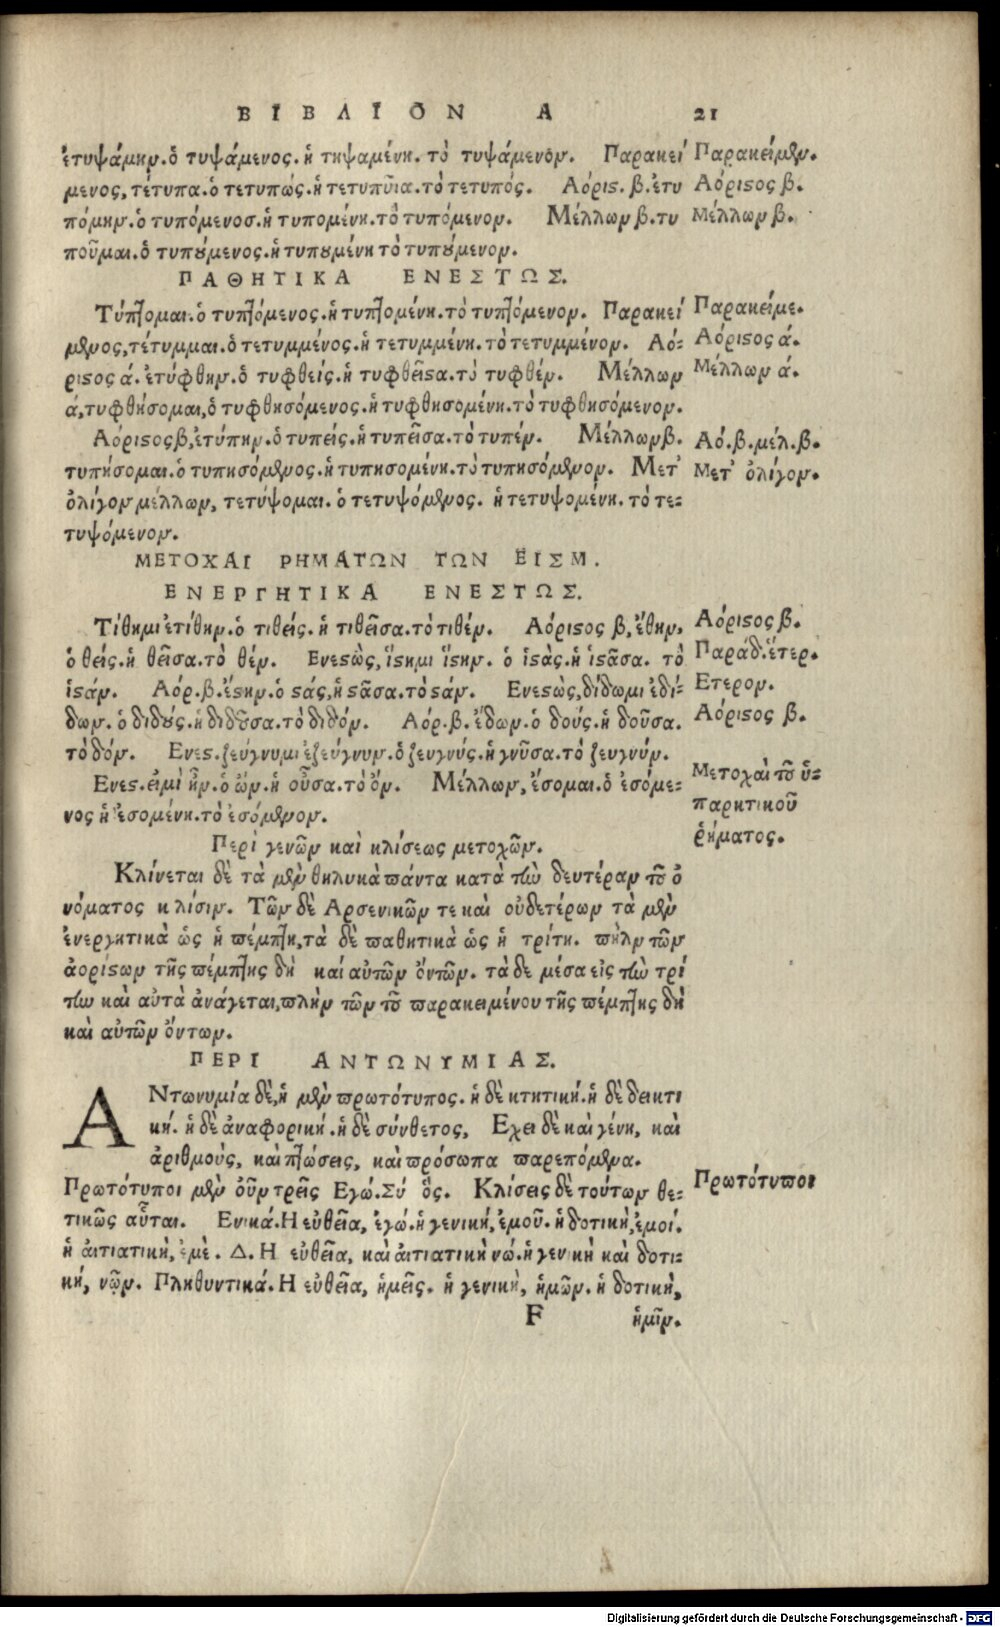 ΒΙΒΛΙΟΝ Α 21
ἐτυψάμην. ὁ τυψάμενος. ἡ τηψαμένη. τὸ τυψάμενον. Παρακεί
μενος, τέτυπα. ὁ τετυπώς. ἡ τετυπῦια. τὸ τετυπός. Αόρις. β. ἐτυ
πόμην. ὁ τυπόμενοσ. ἡ τυπομένη. τὸ τυπόμενον. Μέλλων β. τυ
ποῦμαι. ὁ τυπούμενος. ἡ τυπουμένη τὸ τυπούμενον.
Παρακείμεν.
Αόριστος β.
Μέλλων β.
ΠΑΘΗΤΙΚΑ ΕΝΕΣΤΩΣ.
Τύπτομαι. ὁ τυπτόμενος. ἡ τυπτομένη. τὸ τυπτόμενον. Παρακεί
μενος, τέτυμμαι. ὁ τετυμμένος. ἡ τετυμμένη. τὸ τετυμμένον. Αό-
ριστος ά. ἐτύφθην. ὁ τυφθείς. ἡ τυφθεῖσα. τὸ τυφθέν. Μέλλων
ά, τυφθήσομαι, ὁ τυφθησόμενος. ἡ τυφθησομένη. τὸ τυφθησόμενον.
Αόριστος β, ἐτύπην. ὁ τυπείς. ἡ τυπεῖσα. τὸ τυπέν. Μέλλων β.
τυπήσομαι. ὁ τυπησόμενος. ἡ τυπησομένη. τὸ τυπησόμενον. Μετ'
ὀλίγον μέλλων, τετύψομαι. ὁ τετυψόμενος. ἡ τετυψομένη. τὸ τε-
τυψόμενον.
Παρακείμε.
Αόριστος ά.
Μέλλων ά.
Αό. β. μέλ. β.
Μετ' ὀλίγον.
ΜΕΤΟΧΑΙ ΡΗΜΑΤΩΝ ΤΩΝ ΕΙΣ Μ.
ΕΝΕΡΓΗΤΙΚΑ ΕΝΕΣΤΩΣ.
Τίθημι ἐτίθην. ὁ τιθείς. ἡ τιθεῖσα. τὸ τιθέν. Αόριστος β, ἔθην,
ὁ θείς. ἡ θεῖσα. τὸ θέν. Ενεστὼς, ἵστημι ἵστην. ὁ ἱστὰς. ἡ ἱστᾶσα. τὸ
ἱστάν. Αόρ. β. ἔστην. ὁ στάς, ἡ στᾶσα. τὸ στάν. Ενεστὼς, δίδωμι ἐδί-
δων. ὁ διδούς. ἡ διδοῦσα. τὸ διδόν. Αόρ. β. ἔδων. ὁ δούς. ἡ δοῦσα.
τὸ δόν. Ενεστ. ζεύγνυμι ἐζεύγνυν. ὁ ζευγνύς. ἡ γνῦσα. τὸ ζευγνύν.
Ενεστ. εἰμὶ ἦν. ὁ ὤν. ἡ οὖσα. τὸ ὄν. Μέλλων, ἔσομαι. ὁ ἐσόμε-
νος ἡ ἐσομένη. τὸ ἐσόμενον.
Αόριστος β.
Παράδ. ἕτερ.
Ετερον.
Αόριστος β.
Μετοχαὶ τοῦ ὑ-
παρκτικοῦ
ῥήματος.
Περὶ γενῶν καὶ κλίσεως μετοχῶν.
Κλίνεται δὲ τὰ μὲν θηλυκὰ πάντα κατὰ τὴν δευτέραν τοῦ ὀ
νόματος κλίσιν. Τῶν δὲ Αρσενικῶν τε καὶ οὐδετέρων τὰ μὲν
ἐνεργητικὰ ὡς ἡ πέμπτη, τὰ δὲ παθητικὰ ὡς ἡ τρίτη. πλὴν τῶν
ἀορίστων τῆς πέμπτης δὴ καὶ αὐτῶν ὄντων. τὰ δε μέσα εἰς τὴν τρί
την καὶ αὐτὰ ἀνάγεται, πλὴν τῶν τοῦ παρακειμένου τῆς πέμπτης δὴ
καὶ αὐτῶν ὄντων.
ΠΕΡΙ ΑΝΤΩΝΥΜΙΑΣ.
ΑΝτωνυμία δὲ, ἡ μὲν πρωτότυπος. ἡ δὲ κτητική. ἡ δὲ δεικτι
κή. ἡ δὲ ἀναφορική. ἡ δὲ σύνθετος, Εχει δὲ καὶ γένη, καὶ
ἀριθμοὺς, καὶ πτώσεις, καὶ πρόσωπα παρεπόμενα.
Πρωτότυποι μὲν οὖν τρεῖς Εγώ. Σύ ὅς. Κλίσεις δὲ τούτων θε-
τικῶς αὗται. Ενικά. Η εὐθεῖα, ἐγώ. ἡ γενική, ἐμοῦ. ἡ δοτικὴ, ἐμοί.
ἡ ἀιτιατικὴ, ἐμὲ. Δ. Η εὐθεῖα, καὶ ἀιτιατικὴ νώ. ἡ γενικὴ καὶ δοτι-
κή, νῷν. Πληθυντικά. Η εὐθεῖα, ἡμεῖς. ἡ γενικὴ, ἡμῶν. ἡ δοτικὴ,
Πρωτότυποι
F ἡμῖν.
Digitalisierung gefördert durch die Deutsche Forschungsgemeinschaft - DFG